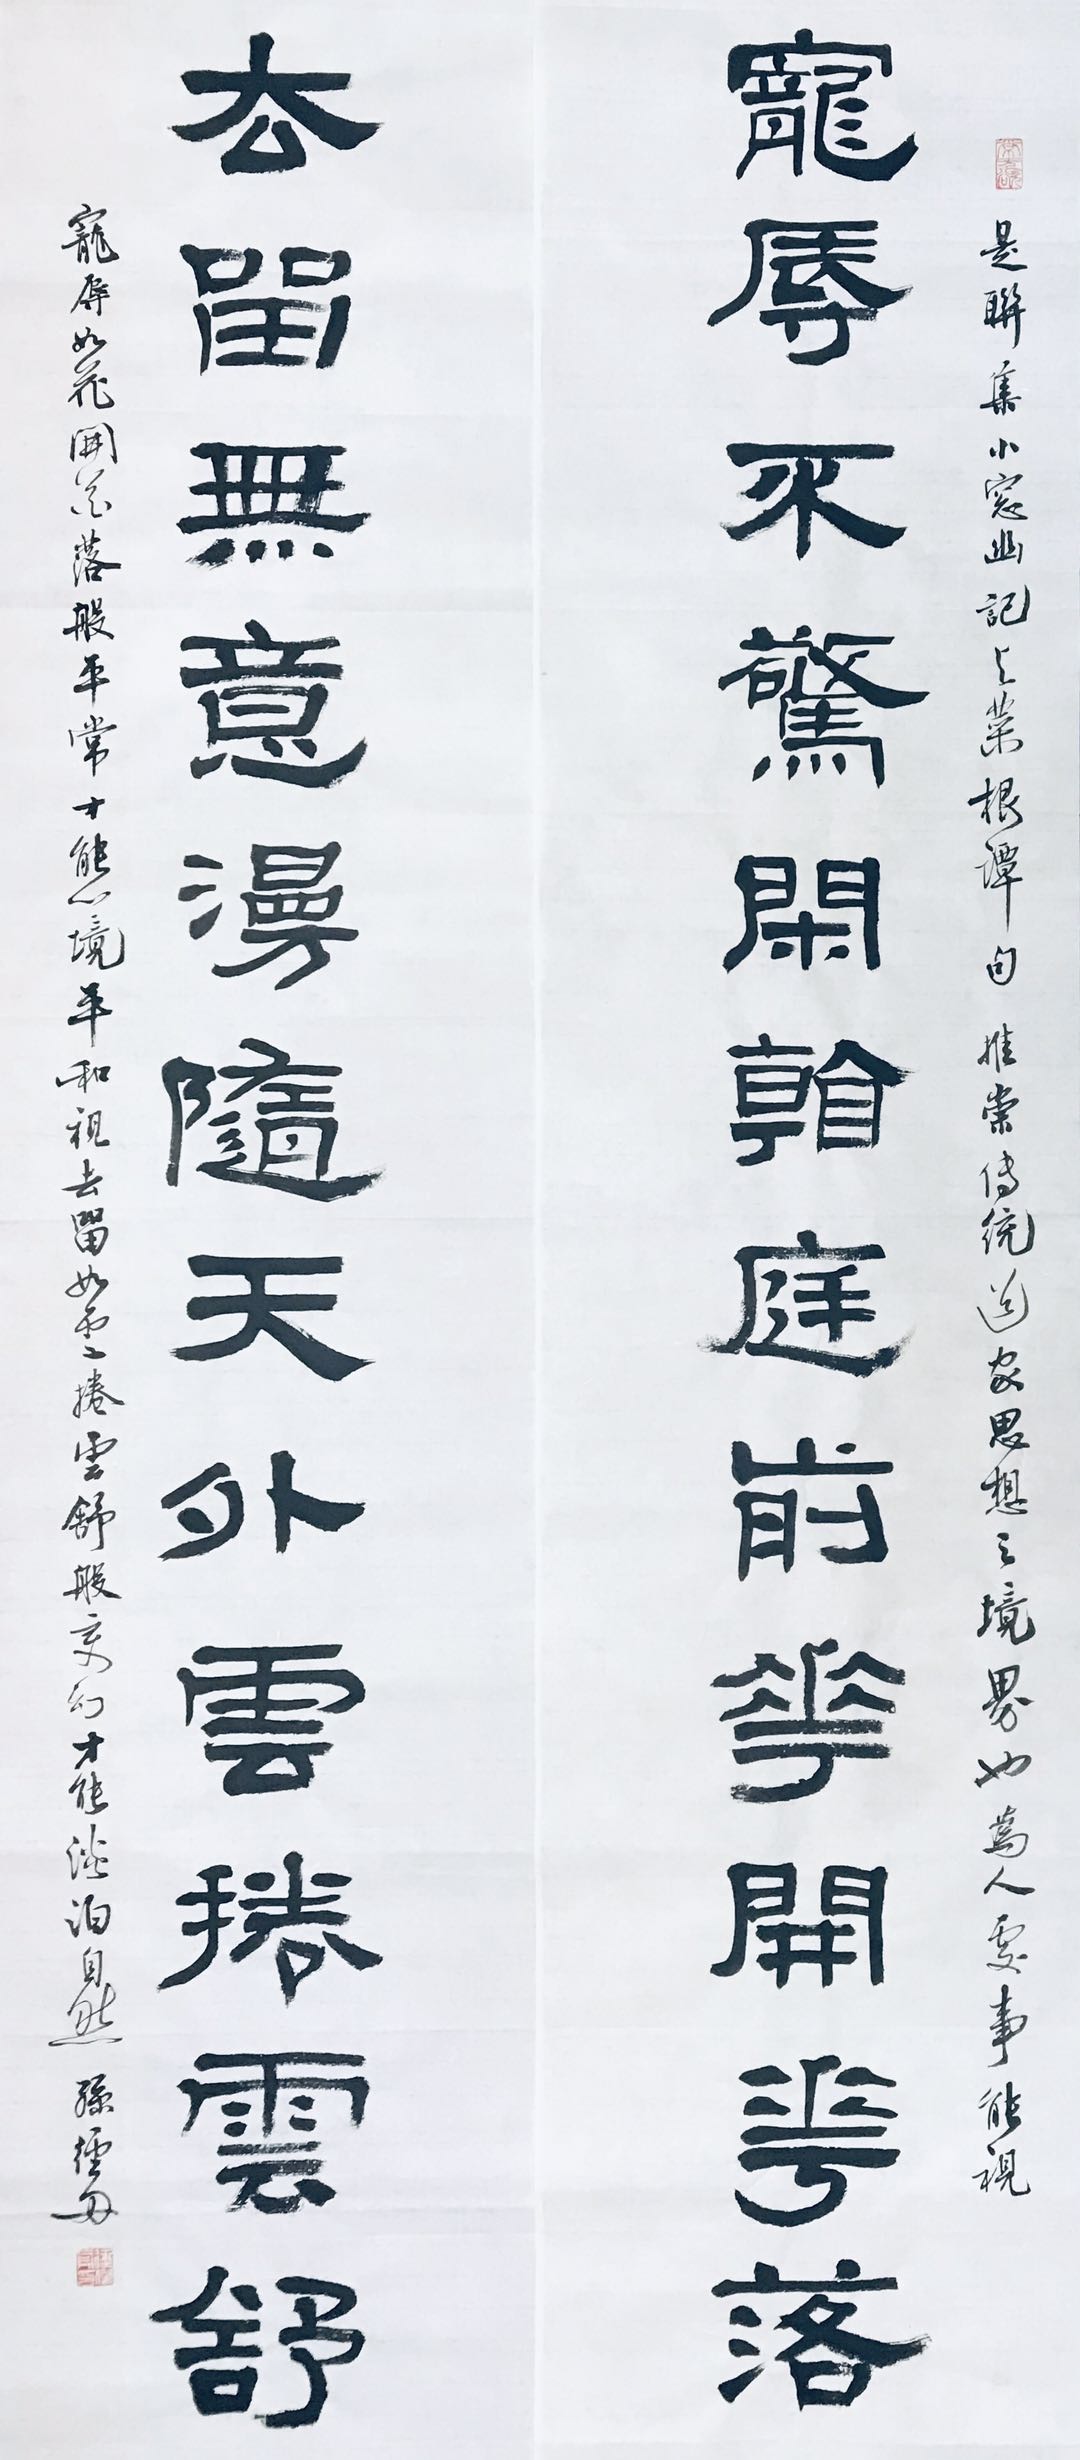 是聯集小窓幽記与菜根譚句 推崇傳統道家思想之境界也為人處事能視
寵辱不驚閑看庭前華開華落
去留無意漫隨天外雲捲雲舒
寵辱如花開花落般平常才能心境平和視去留如雲捲雲舒般变幻才能淡泊自然 孫